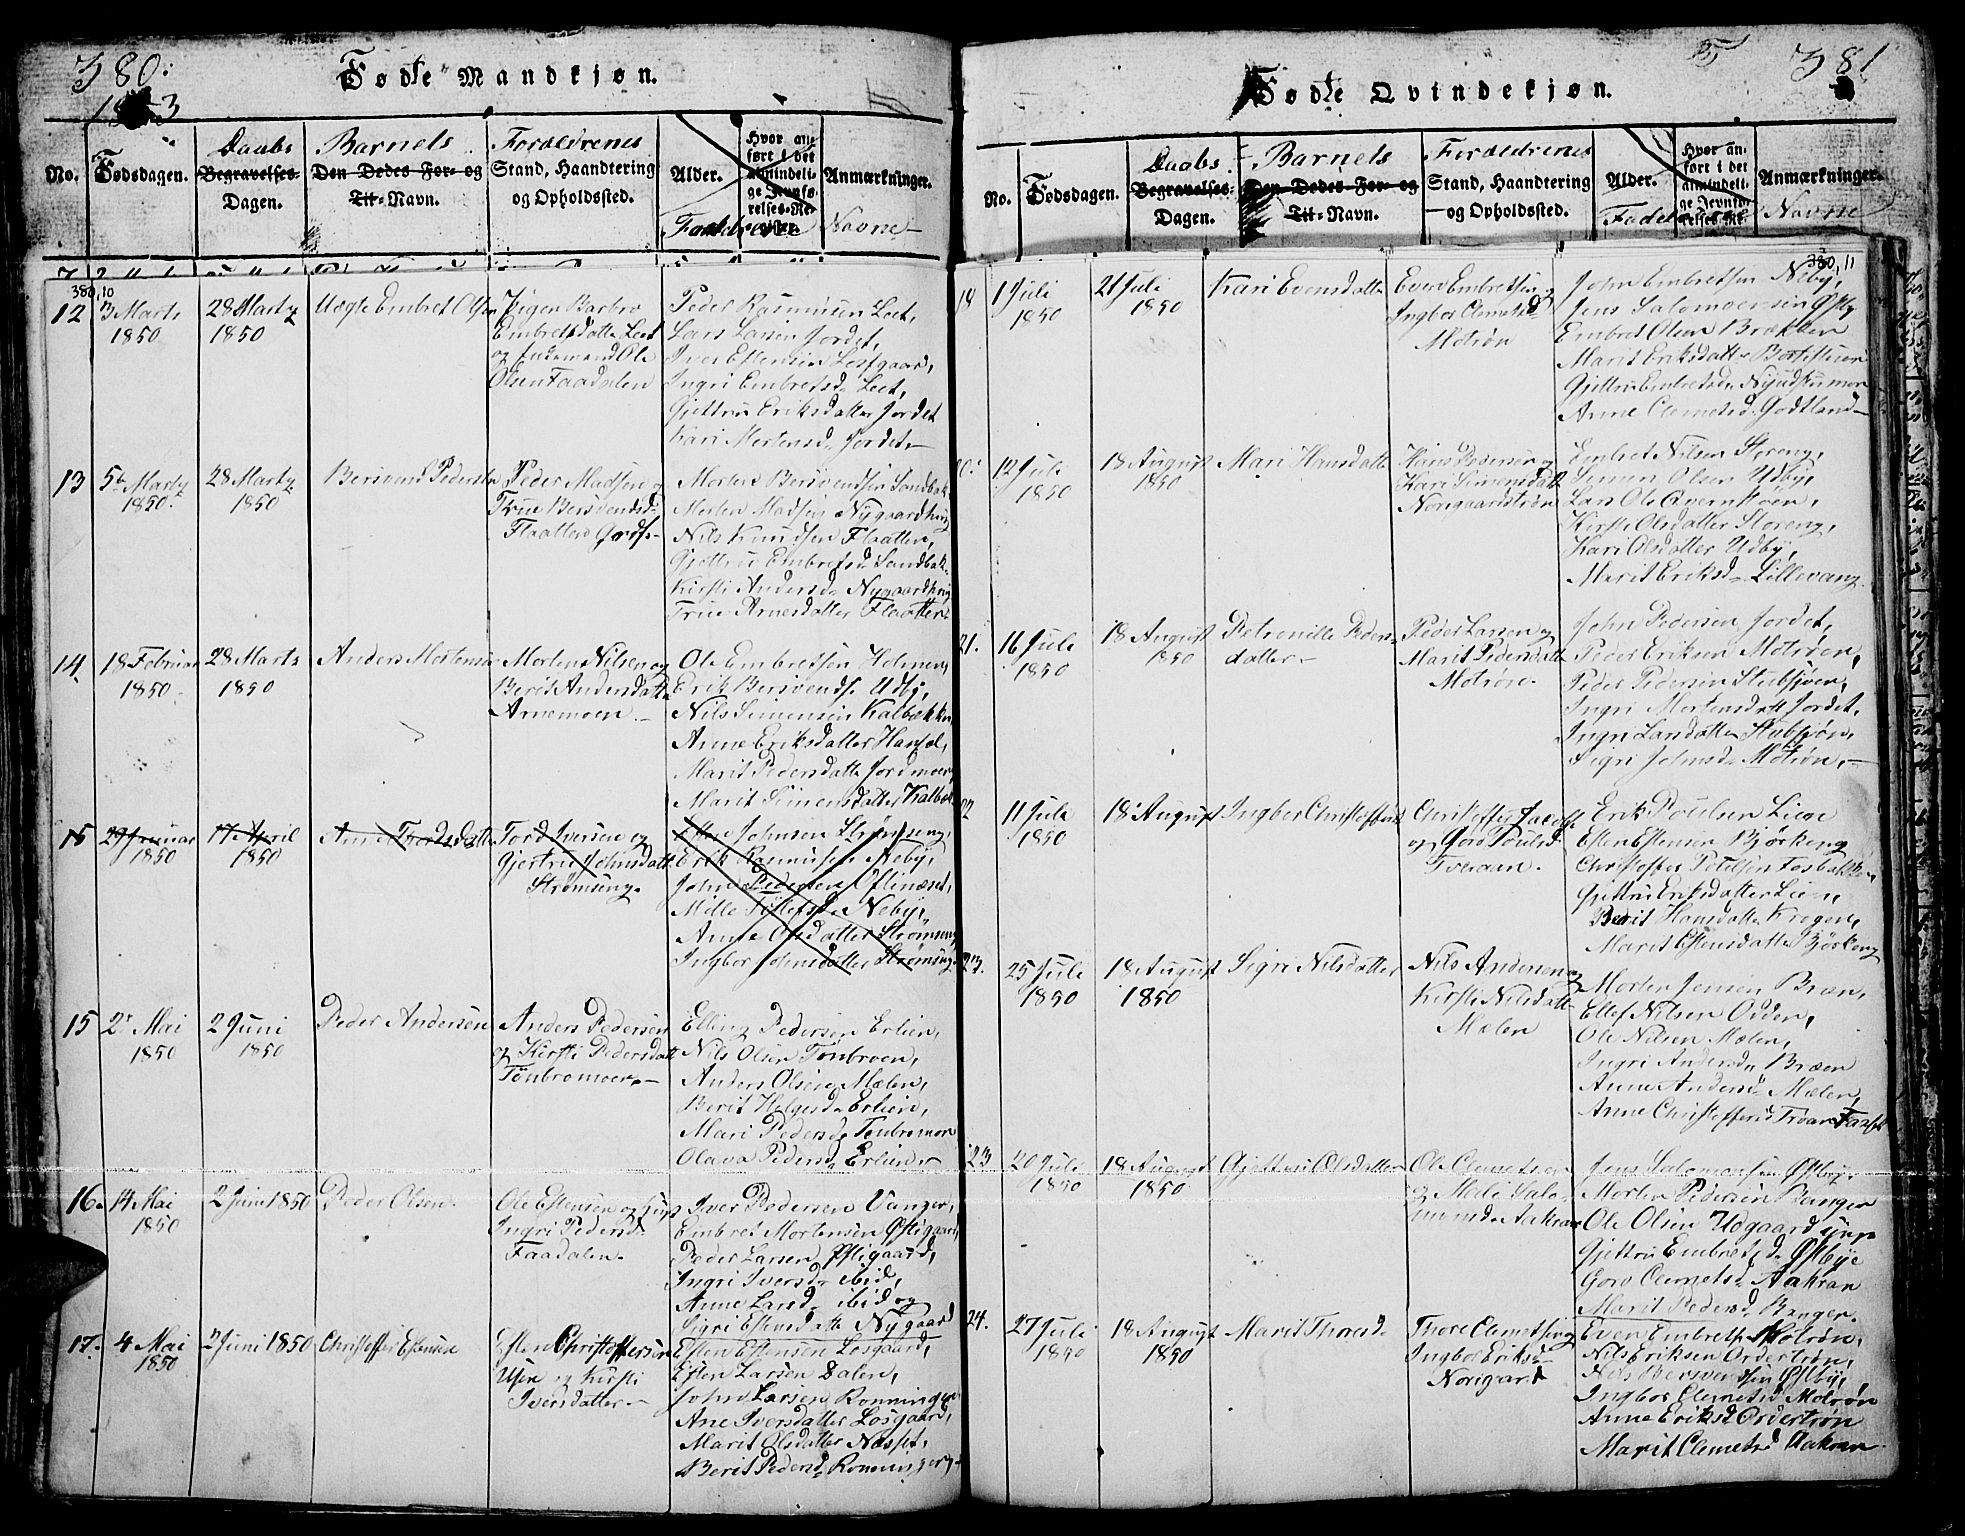 380.
1853
Fødte Mandkjøn.
No.
Fødsdagen.
Daabs
Begravelses-
Dagen.
Barnets
Den Dødes For- og
Til-Navn.
Forældrenes
Stand, Haandtering
og Opholdssted.
Alder.
Hvor an-
ført i det
almindeli-
ge Jevnfø-
relses-Re-
Anmærkninger.
Faddernes
Navne
380,10
12
3 Marts
1850
28 Marts
1850
Uægte Embret Olsen
Pigen Barbro
Embretsdatter Leet
og Ole
Olsen Faadalen
Peder Rasmusen Leet,
Lars Larsen Jordet,
Iver Estensen Losgaard,
Ingri Embretsd Leet,
Gjertrud Eriksdatter Jordet
Kari Mortensd Jordet
13
5 Marts
1850.
28 Marts
1850
Bersvend Pedersen
Peder Madsen og
True Bersvendsd
Flaatten
Morten Bersvendsen Sandbak
Morten Madsen Nygaard
Nils Knudsen Flaatten,
Gjertrud Embretsd Sandbak
Kirsti Andersd Nygaard
True Arnesdatter Flaatten
14
18 Februar
1850
28 Marts
1850
Anders Mortensen
Morten Nilsen og
Berit Andersdatt
Arnemoen
Ole Embretsen Holmen,
Erik Bersvends. Udby,
Nils Simensen Kalbækken
Anne Eriksdatter
Marit Pedersdatt Jordmoen
Marit Simensdatter Kalbæk
15
1850
17 April
1850
Tordsdatter
Tord Iversen og
Gjertrud Johnsdatt
Strømseng
Johnsen Strømseng,
Erik Rasmusen Neby,
John Pedersen
Neby,
Anne Olsdatter Strømseng
Ingbor Johnsdatter Strømseng
15
2 Mai
1850
2 Juni
1850
Peder Andersen
Anders Pedersen
og Kirsti Pedersdatt
Tønbromoen
Elling Pedersen Erlien,
Nils Olsen Tønbroen,
Anders Olsen Mælen,
Berit Helgesd Erlien,
Mari Pedersd Tønbromoen
Olava Pedersd Erlien
16.
14 Mai
1850
2 Juni 1850
Peder Olsen
Ole Estensen og
Ingri Pedersd
Faadalen
Iver Pedersen Vangen,
Embret Mortensen Østigaard,
Peder Larsen Østigaard,
Ingri Iversd ibid,
Anne Larsd ibid og
Sigri Estensdatt Nygaard
17.
4 Mai
1850
2 Juni 1850
Christoffer Estensen
Esten Christoffersen
og Kirsti
Iversdatter
Esten Estensen Losgaard,
Esten Larsen Dalen,
John Larsen Ronningen
Ane Iversdatter Losgaard,
Marit Olsdatter Næsset,
Berit Pedersd Ronningen
381
Fødte Qvindekjøn.
No.
Fødsdagen.
Daabs
Begravelses-
Dagen.
Barnets
Den Dødes For- og
Til-Navn.
Forældrenes
Stand, Haandtering
og Opholdssted.
Alder.
Hvor an-
ført i det
almindeli-
ge Jevnfø-
relses-Re-
Anmærkninger.
Navne
380,11
1 Juli
1850
21 Juli
1850
Kari Evensdatter
Even Embretsen og
Ingbor Clemetsd
Motrøn
John Embretsen Neby,
Jens Salomonsen Østby
Embret Olsen Brækken
Marit Eriksdatter
Gjertru Embretsd
Anne Clemetsd Godtland
12 Juli
1850
18 August
1850
Mari Hansdatter
Hans Pedersen og
Kari Simensdatt
Norigaardstrøn
Embret Nilsen Storeng,
Simen Olsen Udby,
Lars Ole Qvernstoen,
Kirsti Olsdatter Storeng,
Kari Olsdatter Udby,
Marit Eriksd Lillevang
21.
16 Juli
1850
18 August
1850
Petronille Peders-
datter
Peder Larsen og
Marit Pedersdatt
Motrøn
John Pedersen Jordet,
Peder Eriksen Motrøn,
Peder Pedersen Stubsjoen,
Ingri Mortensdatt Jordet,
Ingri Larsdatter Stubsjøen,
Sigri Johnsd Motrøn,
11 Juli
1850
18 August
Ingbor Christoffersd
Christoffer
og Goro Poulsd
Tveraaen
Erik Poulsen Lien
Esten Estensen Bjørkeng
Christoffer
Gjertru Eriksdatter Lien,
Berit Hansdatter Krogen,
Marit Estensdatt Bjørkeng
23.
25 Juli
1850
18 August
1850
Sigri Nilsdatter
Nils Andersen og
Kirsti Nilsdatt
Mælen
Morten Jensen Bræen,
Ellef Nilsen Odden,
Ole Nilsen Mælen,
Ingri Andersd Bræen
Anne Andersd Mælen,
Anne Christoffersd
23
20 Juli
1850
18 August
1850
Gjertru Olsdatter
Ole Clemetsen
og Mali Salo-
monsd Aakran
Jens Salomonsen Østby,
Morten Pedersen Banger
Ole Olsen Udgaard
Gjertru Embretsd Østbye
Goro Clemetsd Aakran
Marit Pedersd Banger
24.
27 Juli
1850
18 August
1850
Marit Thoresd
Thore Clemetsen og
Ingbor Eriksd
Norigard
Even Embretsen Motrøn,
Nils Eriksen Ordertrøn,
Nils Bersvendsen Østby,
Ingbor Clemetsd Motrøn
Anne Eriksd Ordertrøn
Marit Clemetsd Aakran